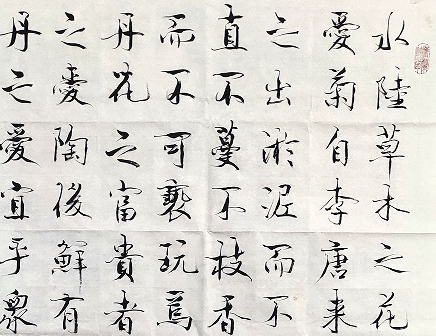 水陸草木之花
愛菊自李唐来
之出淤泥而不
直不蔓不枝香
而不可褻玩焉
丹花之富貴者
之愛陶後鮮有
丹之愛宜乎衆